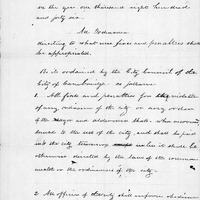 in the year one thousand eight hundred
and forty six
An Ordinance
directing to what use fines and penalties shall
be appropriated.
Be it ordained by the City Council of the
City of Cambridge as follows
All fines and penalties for the violation
of any ordinance of the city or any order
of the Mayor and aldermen shall when recovered
inure to the use of the city and shall be paid
into the city treasury except when it shall be
otherwise directed by the laws of the common
wealth or the ordinances of the city.
2 All officers of the city shall